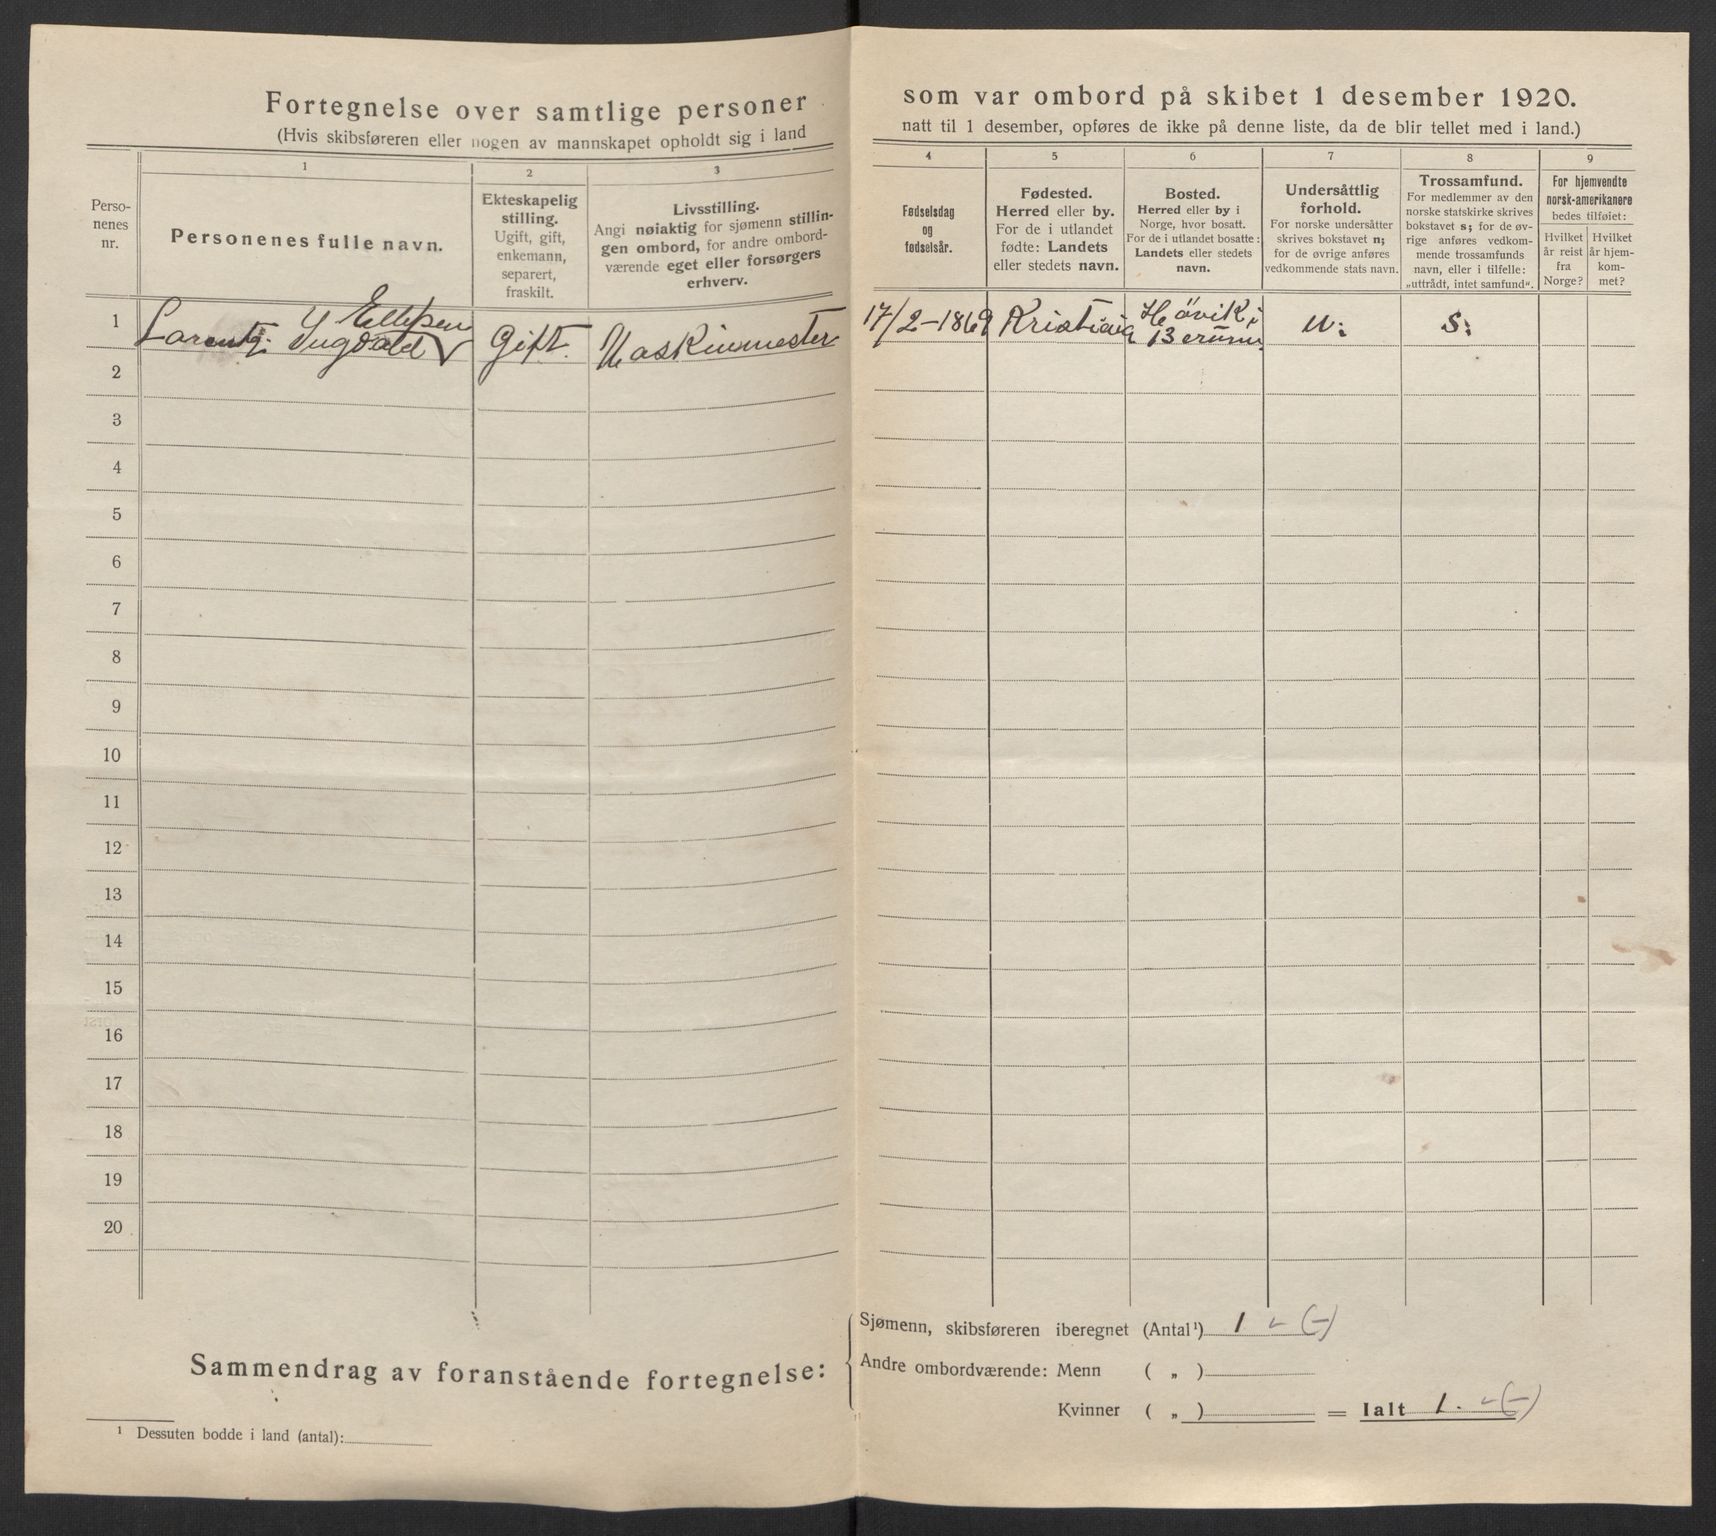 Fortegnelse over samtlige personer som var ombord på skibet 1 desember 1920.
(Hvis skibsføreren eller nogen av mannskapet opholdt sig i land natt til 1 desember, opføres de ikke på denne liste, da de blir tellet med i land.)
Perso-
nenes
nr.
1
Personenes fulle navn.
2
Ekteskapelig
stilling.
Ugift, gift,
enkemann,
separert,
fraskilt.
3
Livsstilling.
Angi nøiaktig for sjømenn stillin-
gen ombord, for andre ombord-
værende eget eller forsørgers
erhverv.
4
Fødselsdag
og
fødselsår.
5
Fødested.
Herred eller by.
For de i utlandet
fødte: Landets
eller stedets navn.
6
Bosted.
Herred eller by i
Norge, hvor bosatt.
For de i utlandet bosatte:
Landets eller stedets
navn.
7
Undersåttlig
forhold.
For norske undersåtter
skrives bokstavet n;
for de øvrige anføres
vedkommende stats navn.
8
Trossamfund.
For medlemmer av den
norske statskirke skrives
bokstavet s; for de øv-
rige anføres vedkom-
mende trossamfunds
navn, eller i tilfelle:
„uttrådt, intet samfund".
9
For hjemvendte
norsk-amerikanere
bedes tilføiet:
Hvilket
år reist
fra
Norge?
Hvilket
år hjem-
kom-
met?
1
Ellefsen
Gift. Maskinmester 17/2-1869 Kristiania Høvik i
Bærum. n: s:
2
3
4
5
6
7
8
9
10
11
12
13
14
15
16
17
18
19
20
Sammendrag av foranstående fortegnelse:
Sjømenn, skibsføreren iberegnet (Antal¹) 1 - (-)
Andre ombordværende: Menn ( „ )
Kvinner ( „ ) = Ialt 1. - (-)
¹ Dessuten bodde i land (antal):